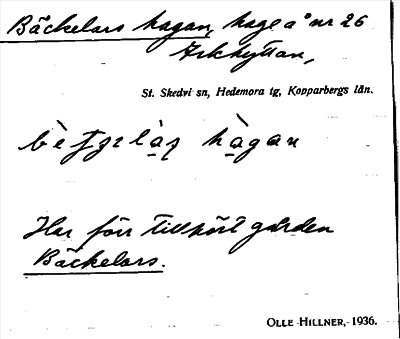 Bäckelars hagan, hage å nr 26
Arkhyttan,
St. Skedvi sn, Hedemora tg, Kopparbergs län.
hàgan
Har förr tillhört gården
Bäckelars.
OLLE HILLNER, 1936.